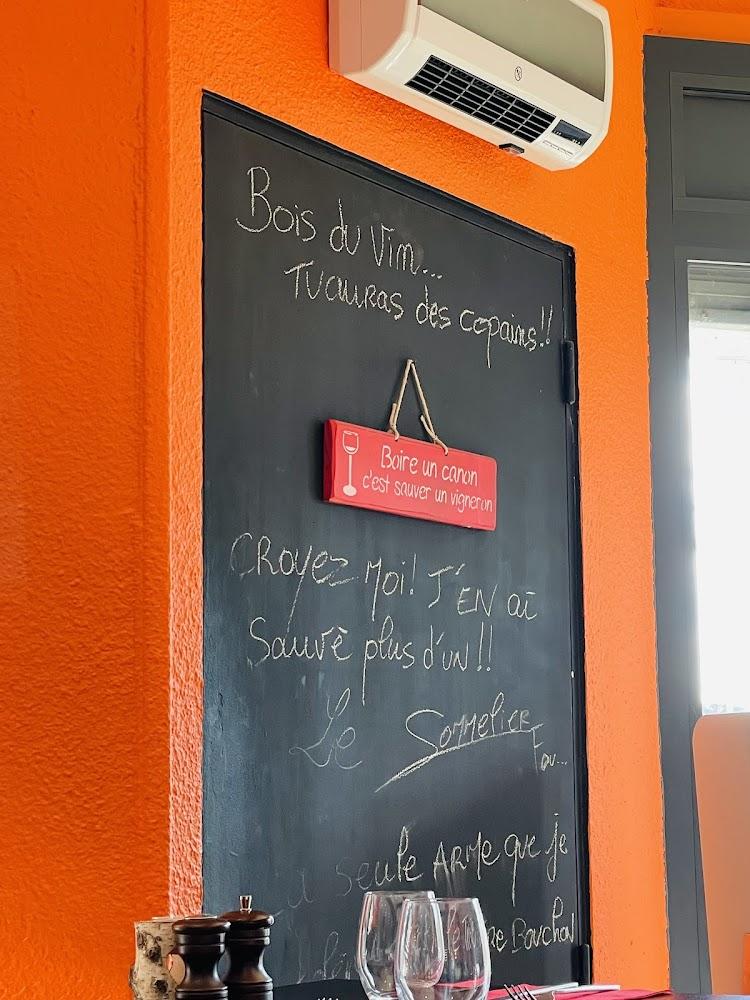 Bois du Vin...
Tu auras des copains!!
Boire un canon
c'est sauver un vigneron
CROYEZ MOI! J'EN ai
Sauvé plus d'un!!
Le Sommelier
Fou...
La seule ARME que je
Bouchon